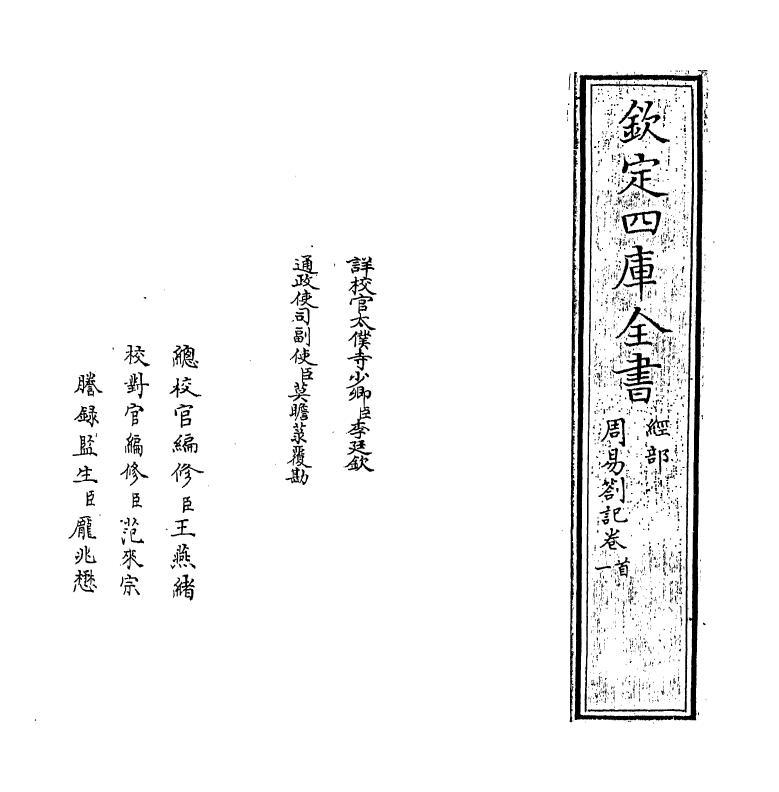 欽定四庫全書
經部
周易劄記卷首一
詳校官太僕寺少卿臣李廷欽
通政使司副使臣莫瞻菉覆勘
總校官編修臣王燕緒
校對官編修臣范來宗
謄錄監生臣龐兆懋